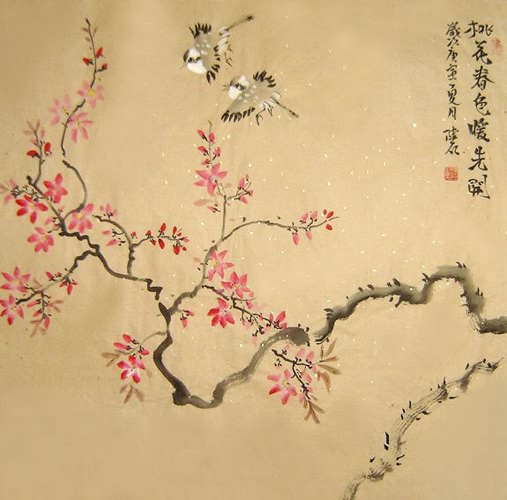 桃花春色暖先開
歲次庚寅夏月